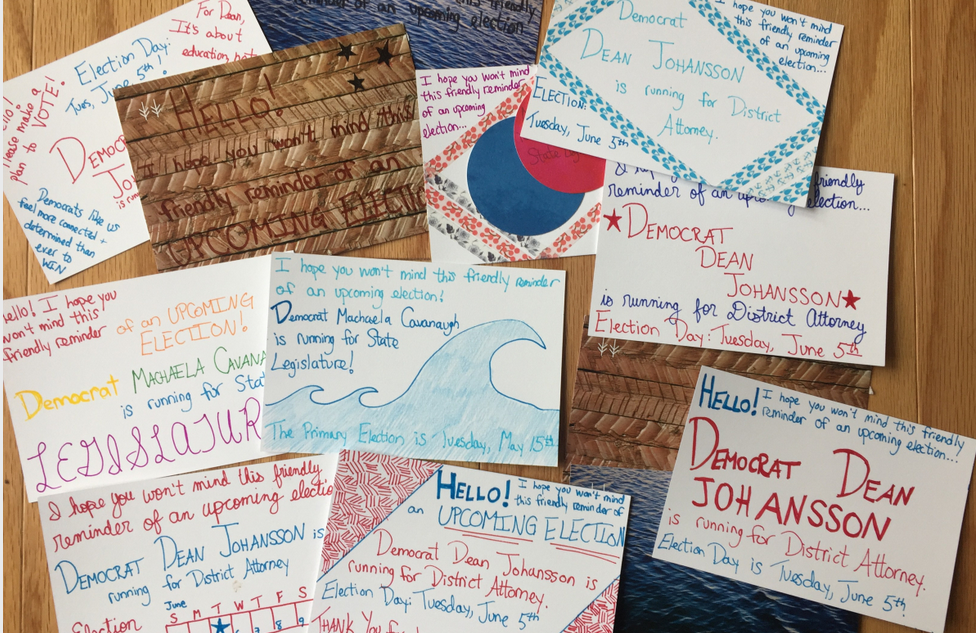 For Dean,
It's about
education, not
Election Day:
Tues, June 5th!
Please make a
plan to VOTE!
Democrats like us
feel more connected +
determined than
ever to
WIN
friendly reminder
of an upcoming election
HELLO!
I hope you won't mind this
friendly reminder of an
UPCOMING ELECTIO
I hope you won't mind
this friendly reminder
of an upcoming
election...
Democrat
DEAN JOHANSSON
is running for District
Attorney.
ELECTION:
Tuesday, June 5th
I hope you won't mind
this friendly reminder
of an upcoming
election...
friendly
reminder of an upcoming election...
DEMOCRAT
DEAN
JOHANSSON
is running for District Attorney
Election Day: Tuesday, June 5th
Hello! I hope you
won't mind this
friendly reminder
of an UPCOMING
ELECTION!
Democrat MACHAELA CAVANA
is running for Sta
LEGISLATUR
I hope you won't mind this friendly reminder
of an upcoming election!
Democrat Machaela Cavanaugh
is running for State
Legislature!
The Primary Election is Tuesday, May 15th
HELLO! I hope you won't mind this friendly
reminder of an upcoming election...
DEMOCRAT DEAN
JOHANSSON
is running for District Attorney.
Election Day is Tuesday, June 5th
I hope you won't mind this friendly
reminder of an upcoming electio
DEMOCRAT DEAN JOHANSSON is
running for District Attorney
June
M T W T F S
7 8 9
Election
HELLO! I hope you won't mind
this friendly reminder of
an UPCOMING ELECTION
Democrat Dean Johansson is
running for District Attorney.
Election Day: Tuesday, June 5th
THANK You f